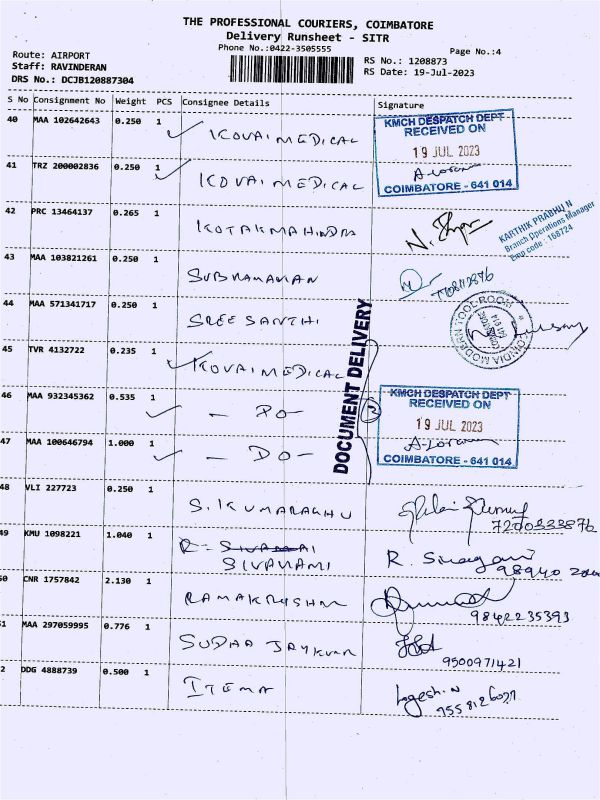 THE PROFESSIONAL COURIERS, COIMBATORE
Delivery Runsheet - SITR
Phone No.:0422-3505555
Page No.:4
Route: AIRPORT
Staff: RAVINDERAN
DRS No.: DCJB120887304
RS No.: 1208873
RS Date: 19-Jul-2023
S No Consignment No Weight PCS Consignee Details Signature
40 MAA 102642643 0.250 1 KOVAI MEDICAL
KMCH DESPATCH DEPT
RECEIVED ON
19 JUL 2023
COIMBATORE - 641 014
41 TRZ 200002836 0.250 1 KOVAI MEDICAL
42 PRC 13464137 0.265 1 KOTAK MAHINDRA
KARTHIK PRABHU N
Branch Operations Manager
Emp code : 168724
43 MAA 103821261 0.250 1 SUBRAMANIAN
44 MAA 571341717 0.250 1 SREE SANTHI
DOCUMENT DELIVERY
45 TVR 4132722 0.235 1 KOVAI MEDICAL
46 MAA 932345362 0.535 1 - DO -
KMCH DESPATCH DEPT
RECEIVED ON
19 JUL 2023
COIMBATORE - 641 014
47 MAA 100646794 1.000 1 - DO -
48 VLI 227723 0.250 1 S. KUMARAGHU
7200333876
49 KMU 1098221 1.040 1 R.
SIVAMAMI
R.
98940
50 CNR 1757842 2.130 1 RAMAKRISHN
9842235393
51 MAA 297059995 0.776 1 SUDHA JAYKUMAR
9500971421
2 DDG 4888739 0.500 1 ITEMA
Logesh.N